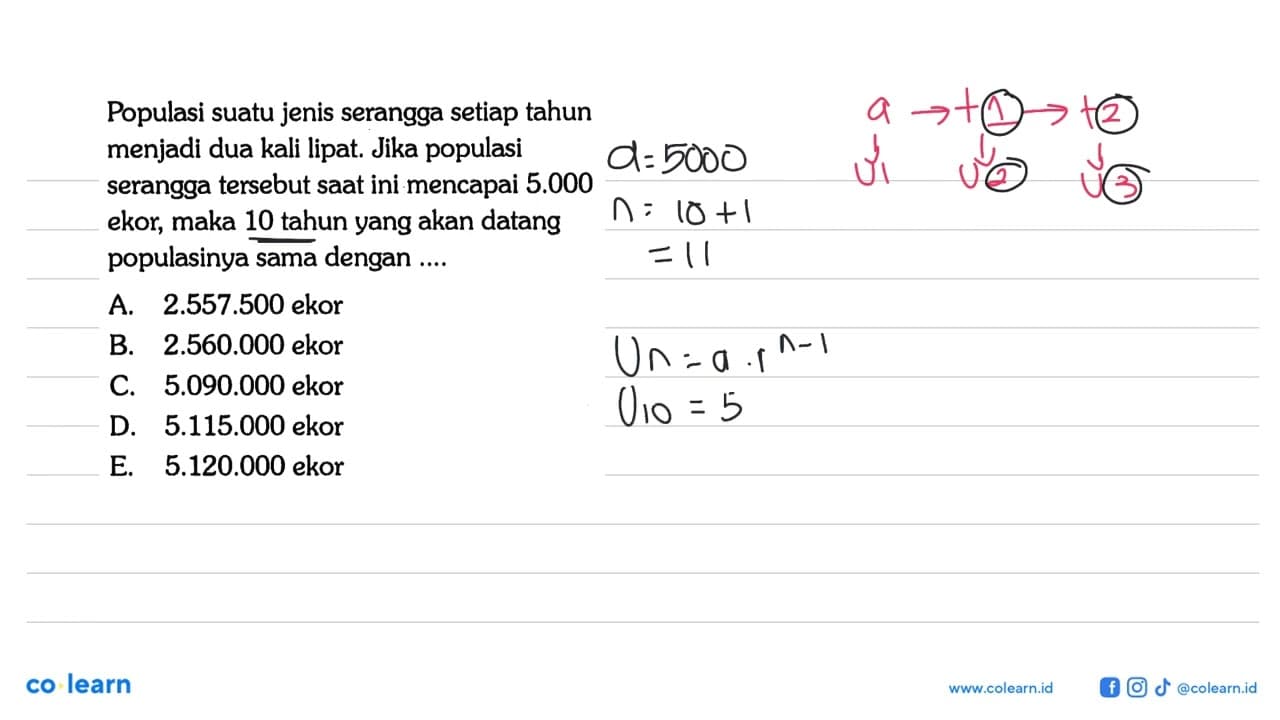 Populasi suatu jenis serangga setiap tahun
menjadi dua kali lipat. Jika populasi
serangga tersebut saat ini mencapai 5.000
ekor, maka 10 tahun yang akan datang
populasinya sama dengan ....
A. 2.557.500 ekor
B. 2.560.000 ekor
C. 5.090.000 ekor
D. 5.115.000 ekor
E. 5.120.000 ekor
a = 5000
n = 10 + 1
= 11
Un = a . r^n-1
U10 = 5
a → +1 → +2
↓ ↓ ↓
U1 U2 U3
co learn
www.colearn.id
@colearn.id